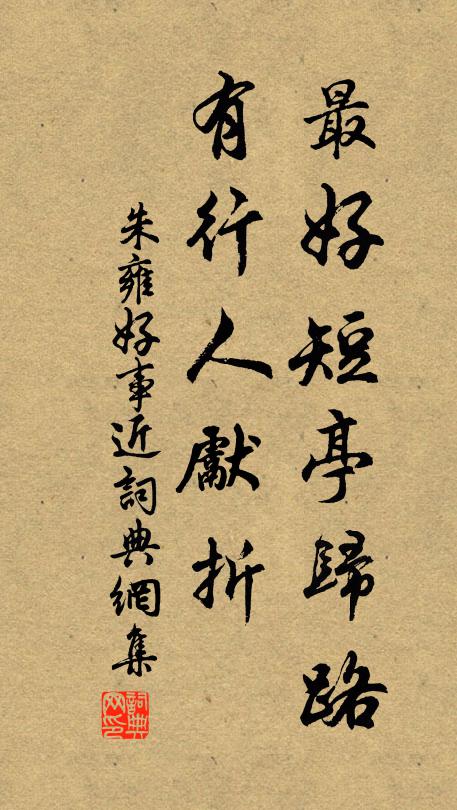 最好短亭歸路
有行人獻折
朱雍好事近詞典網集
詞典
网印